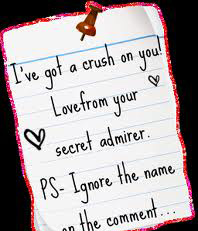 I've got a crush on you!
Lovefrom your
secret admirer.
PS- Ignore the name
on the comment...